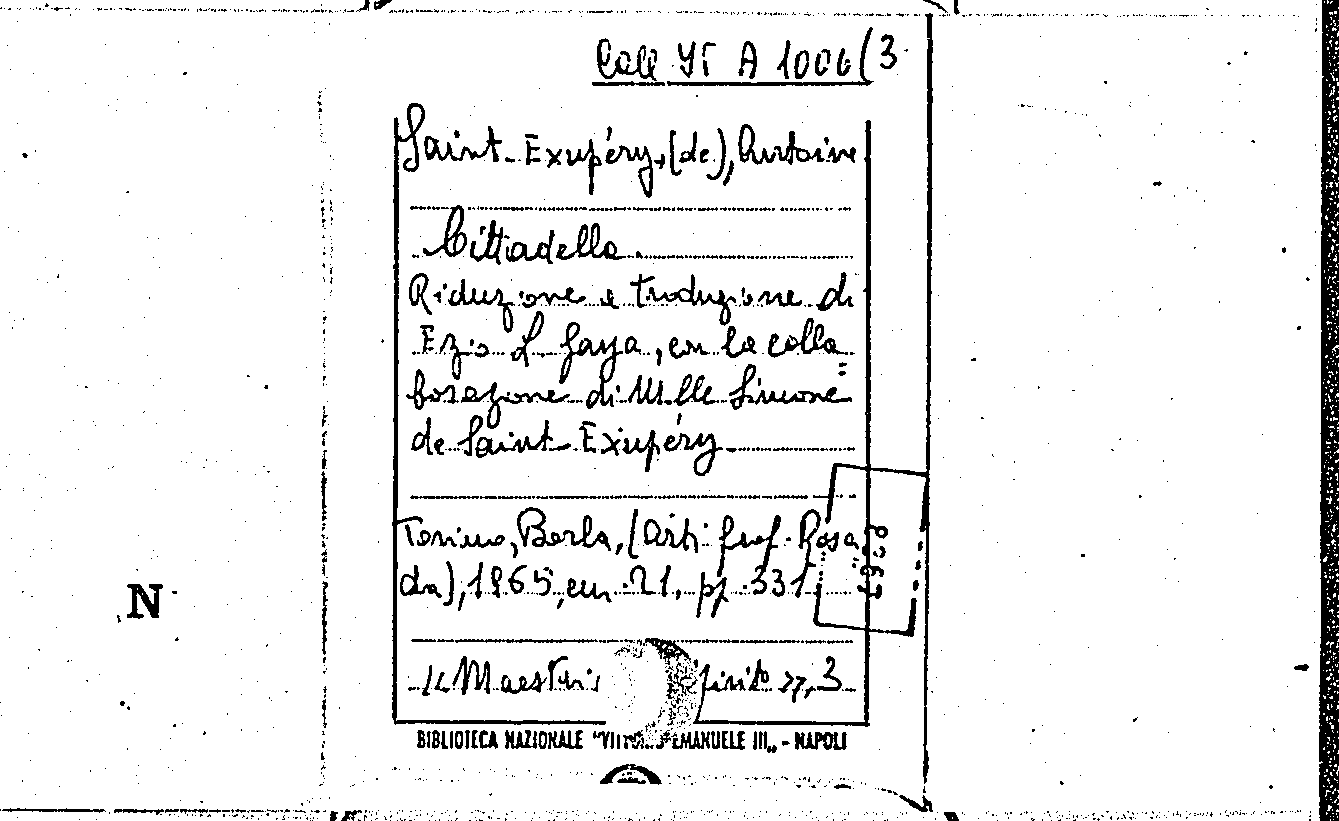 Coll. IT A 1006(3
Saint-Exupéry, (de), Antoine
Cittadella.
Riduzione e traduzione di
Ezio L. Gaya, con la colla=
borazione di M.lle Simone
de Saint-Exupéry
Torino, Borla, (Arti. graf. Rosa
da), 1965, cm. 21. pp. 331
N
"Maestri spirito", 3
BIBLIOTECA NAZIONALE "VITTORIO EMANUELE III„ - NAPOLI